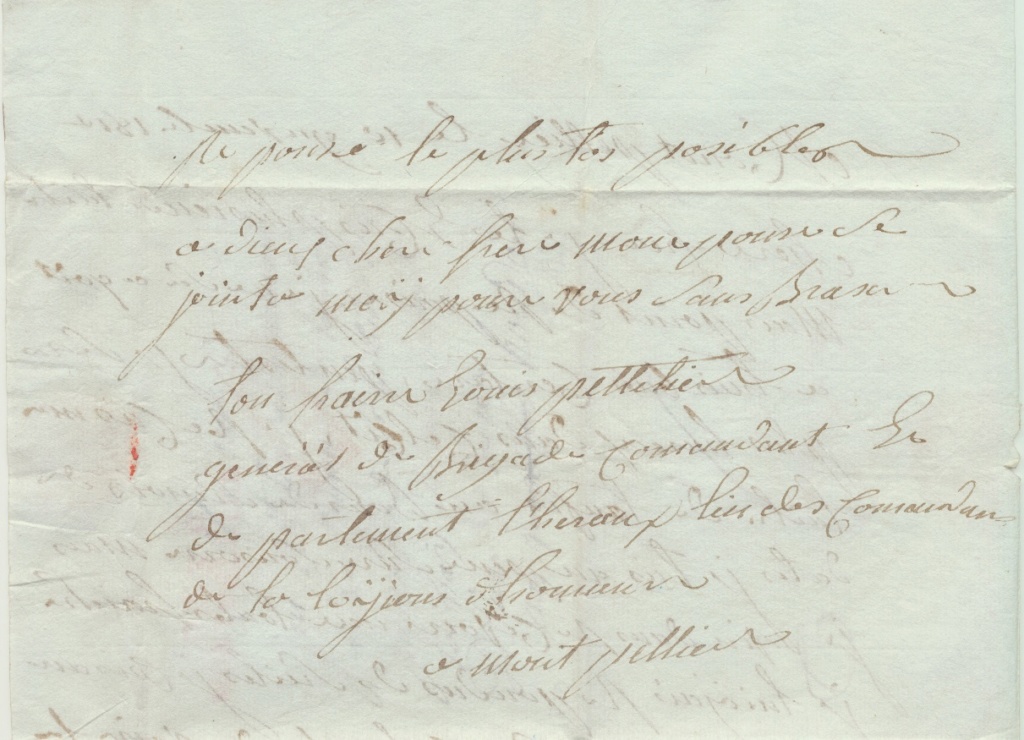 re ponse le plus tos posible
a dieux cher frere mon epouse se
joint a moÿ pour vous Sans Braser
ton fraire Louis pelletier
generas de Brigade Comandant Le
de partement Lheraux lun des Comandan
de la leÿjions d'honneur
a mont pellier